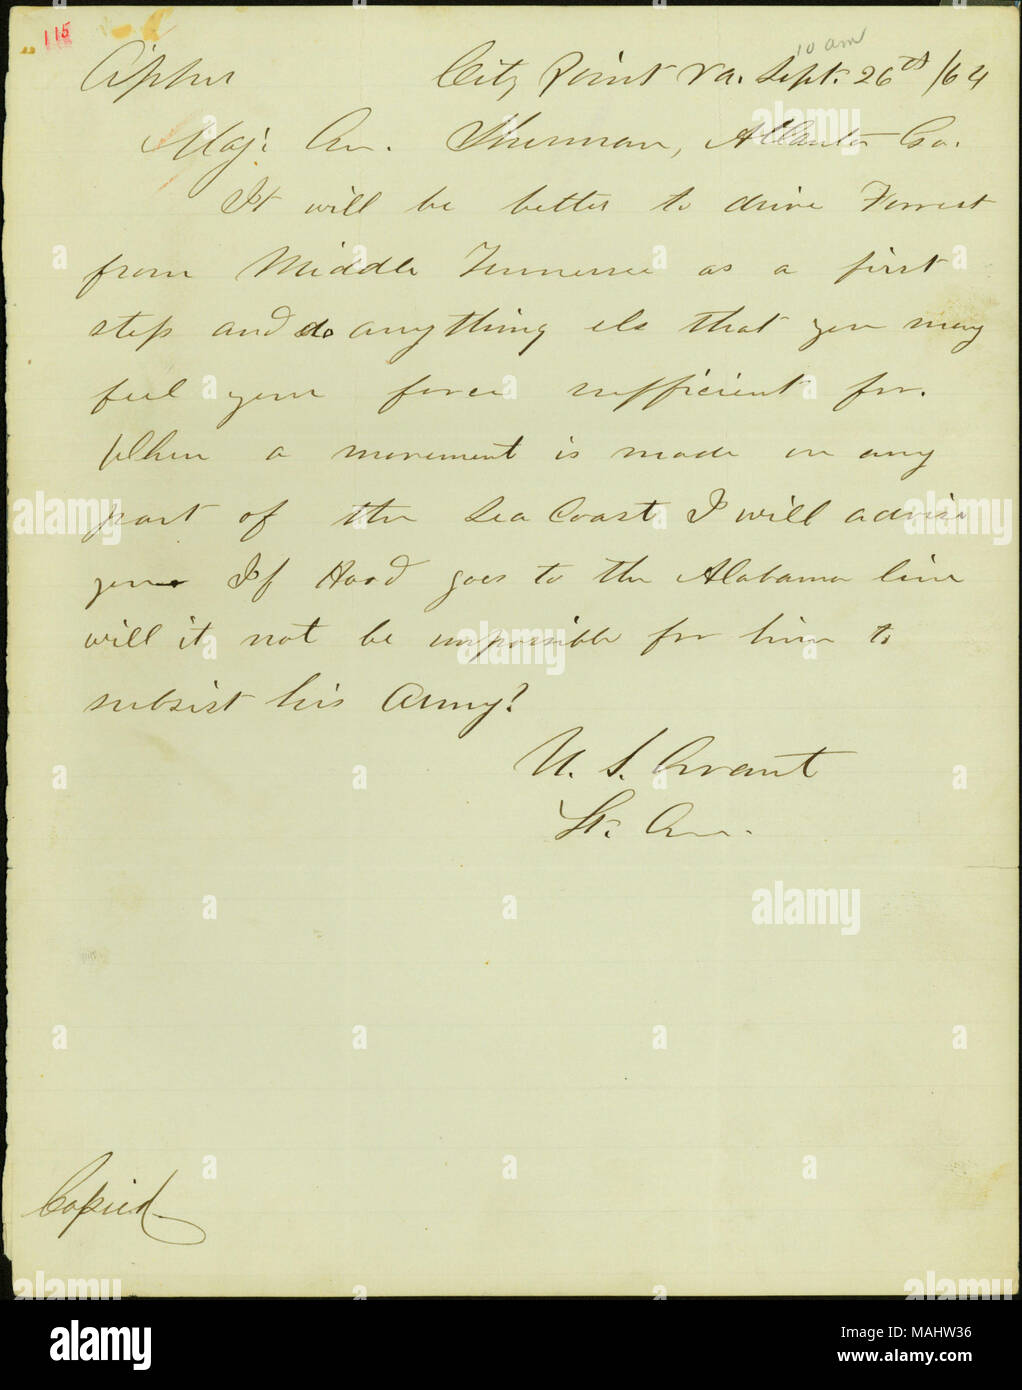 115
10 am
Cipher City Point Va. Sept. 26th /64
Maj. Gn. Sherman, Atlanta Ga.
It will be better to drive Forrest
from Middle Tennessee as a first
step and do anything els that you may
feel your force sufficient for.
When a movement is made on any
part of the Sea Coast I will advise
you. If Hood goes to the Alabama line
will it not be impossible for him to
subsist his Army?
U. S. Grant
Lt. Gn.
Copied
alamy
Image ID: MAHW36
www.alamy.com